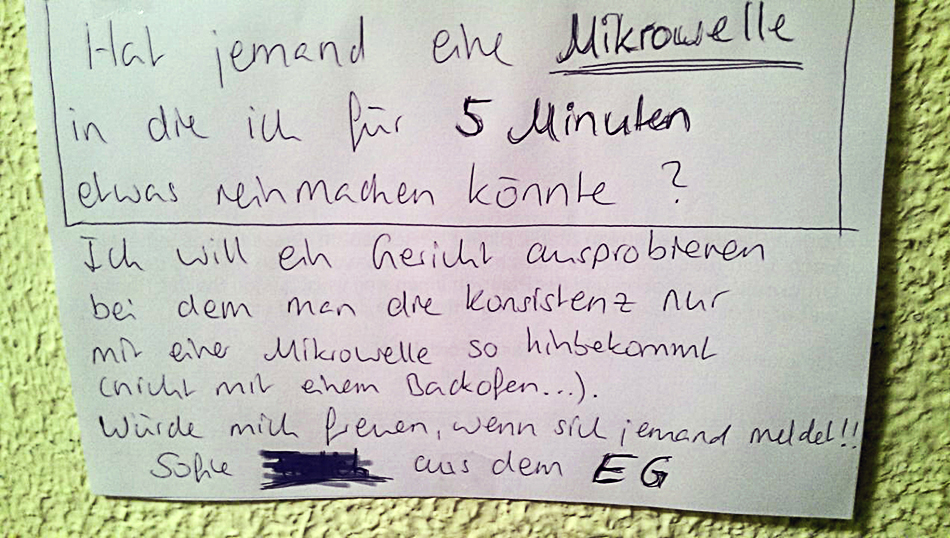 Hat jemand eine Mikrowelle
in die ich für 5 Minuten
etwas reinmachen könnte ?
Ich will ein Gericht ausprobieren
bei dem man die Konsistenz nur
mit einer Mikrowelle so hinbekommt
(nicht mit einem Backofen...).
Würde mich freuen, wenn sich jemand meldet!!
Sofie aus dem EG